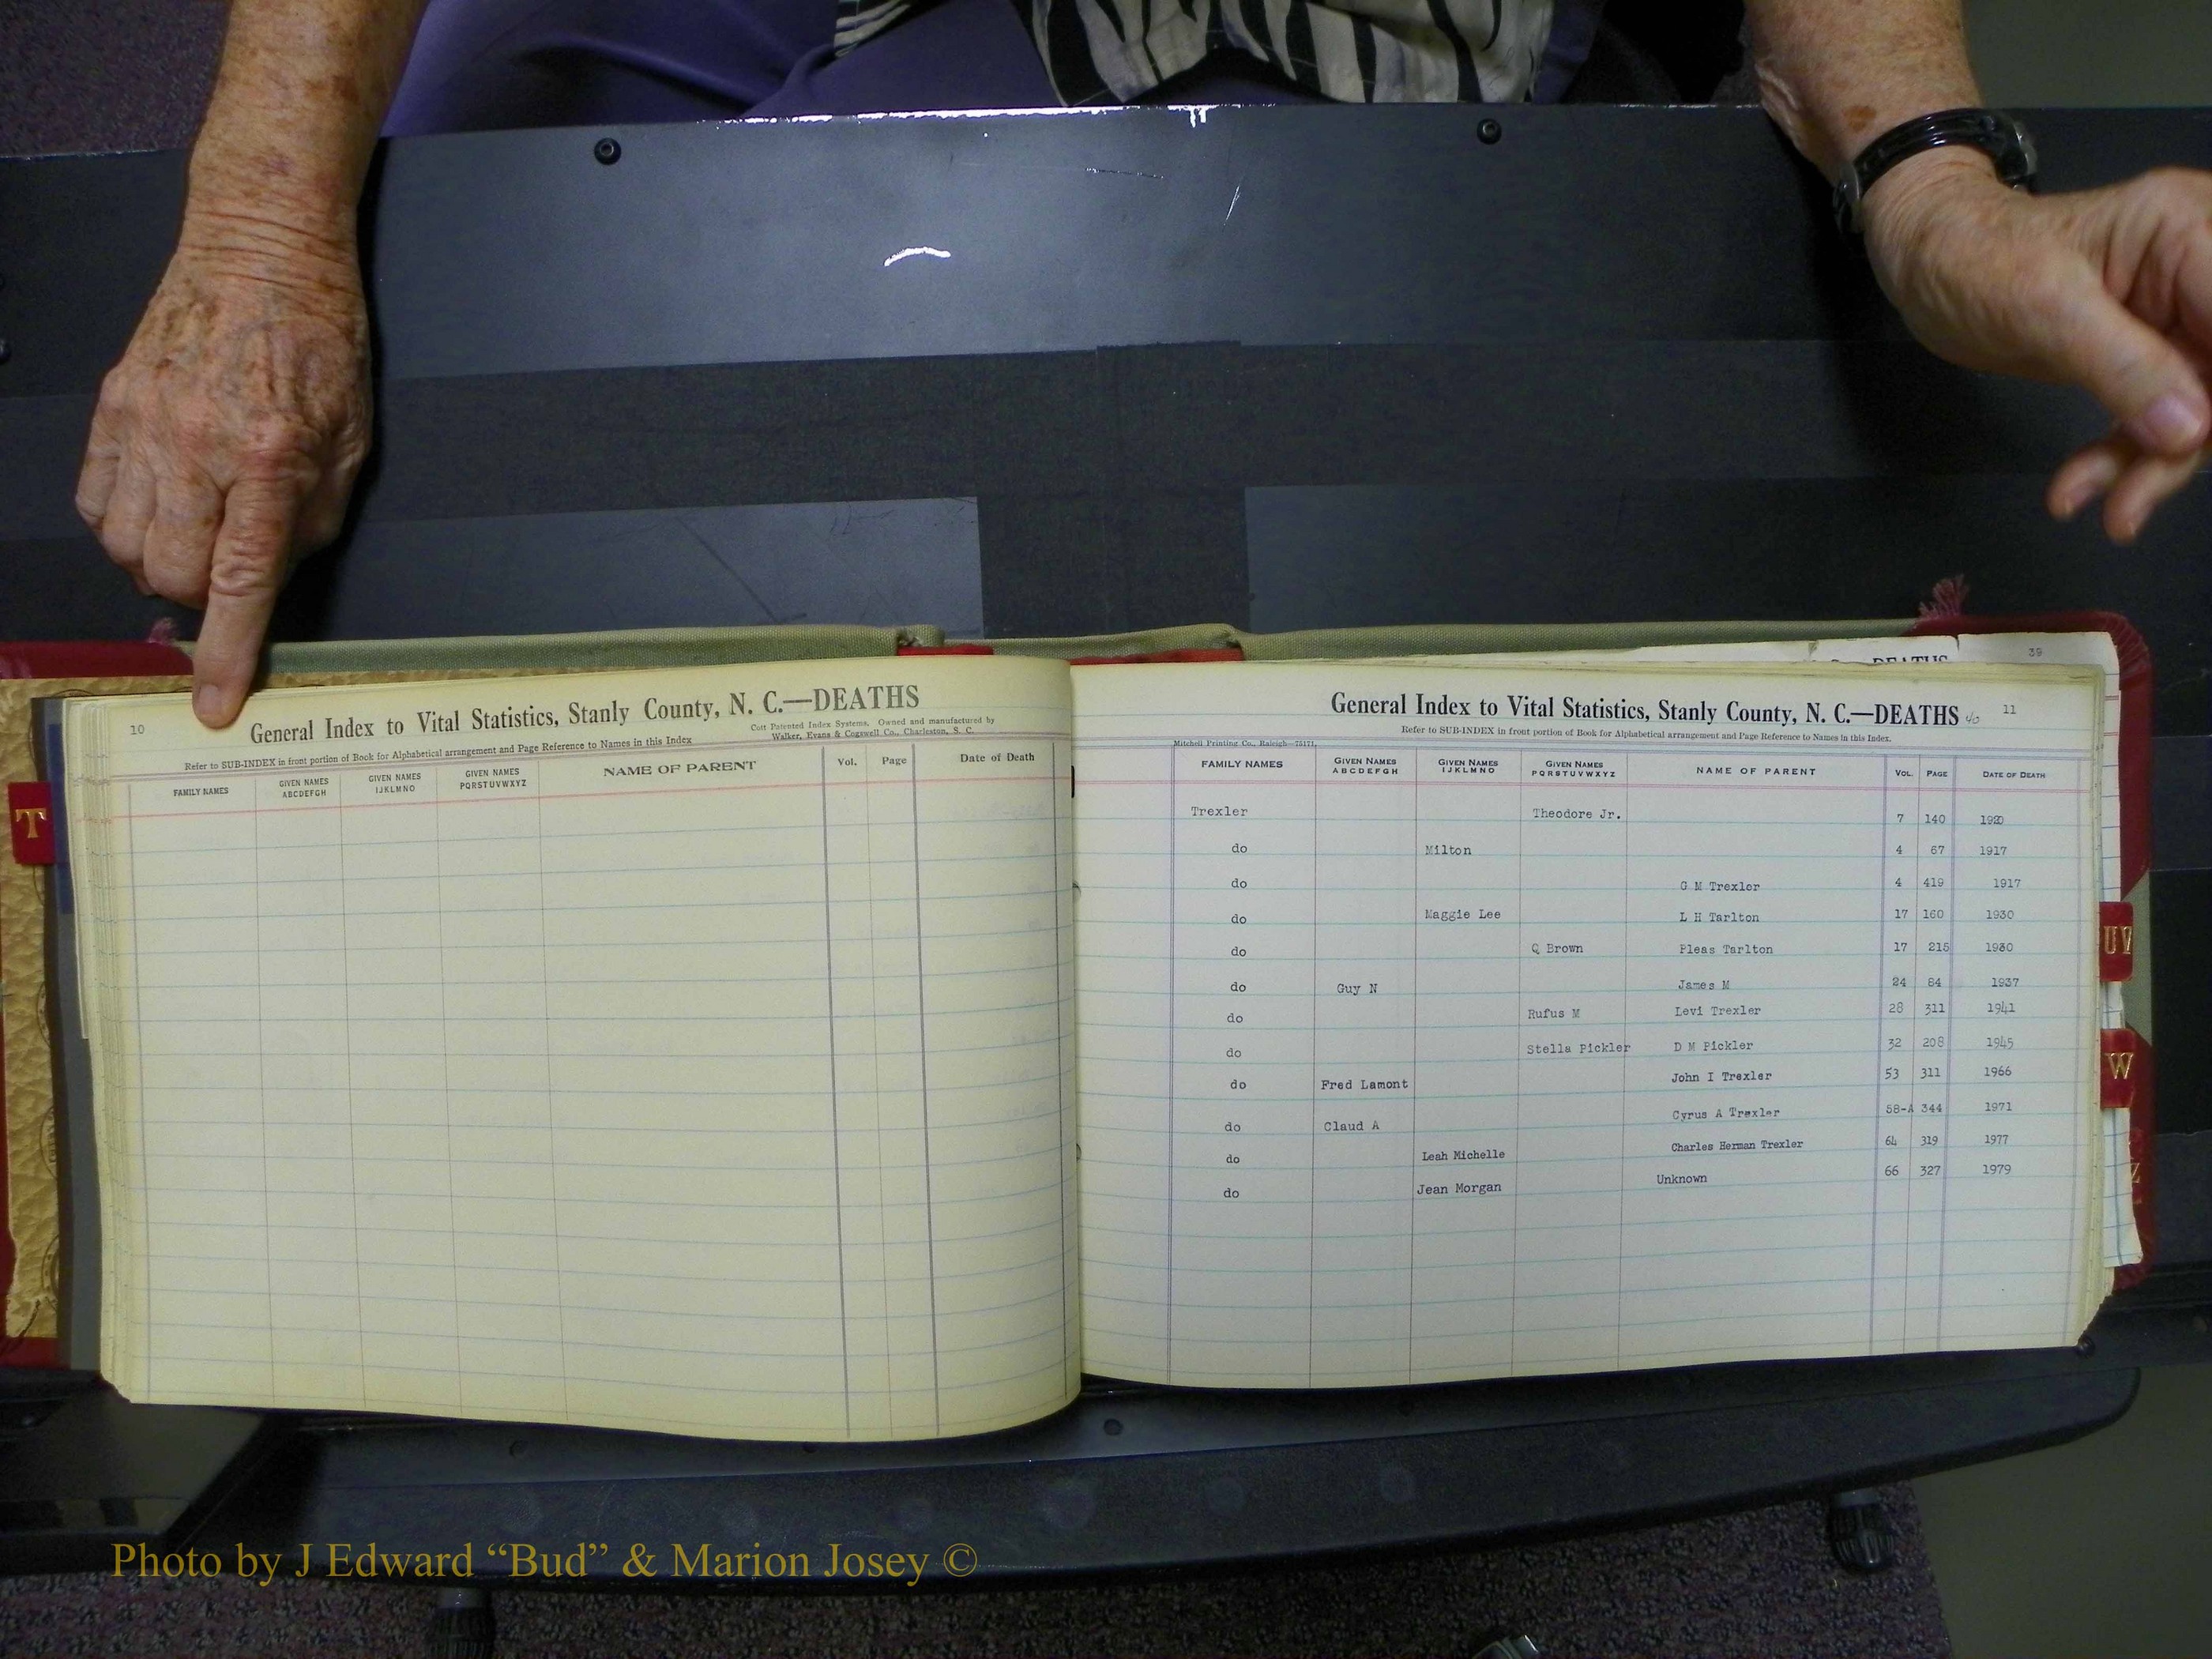 DEATHS
39
10
General Index to Vital Statistics, Stanly County, N. C.—DEATHS
Cott Patented Index Systems. Owned and manufactured by
Walker, Evans & Cogswell Co., Charleston, S. C.
Refer to SUB-INDEX in front portion of Book for Alphabetical arrangement and Page Reference to Names in this Index
FAMILY NAMES GIVEN NAMES ABCDEFGH GIVEN NAMES IJKLMNO GIVEN NAMES PQRSTUVWXYZ NAME OF PARENT Vol. Page Date of Death
T
General Index to Vital Statistics, Stanly County, N. C.—DEATHS 40 11
Refer to SUB-INDEX in front portion of Book for Alphabetical arrangement and Page Reference to Names in this Index.
Mitchell Printing Co., Raleigh—75171.
FAMILY NAMES GIVEN NAMES ABCDEFGH GIVEN NAMES IJKLMNO GIVEN NAMES PQRSTUVWXYZ NAME OF PARENT VOL. PAGE DATE OF DEATH
Trexler Theodore Jr. 7 140 1920
do Milton 4 67 1917
do G M Trexler 4 419 1917
do Maggie Lee L H Tarlton 17 160 1930
do Q Brown Pleas Tarlton 17 215 1930
do Guy N James M 24 84 1937
do Rufus M Levi Trexler 28 311 1941
do Stella Pickler D M Pickler 32 208 1945
do Fred Lamont John I Trexler 53 311 1966
do Claud A Cyrus A Trexler 58-A 344 1971
do Leah Michelle Charles Herman Trexler 64 319 1977
do Jean Morgan Unknown 66 327 1979
UV
W
Z
Photo by J Edward “Bud” & Marion Josey ©